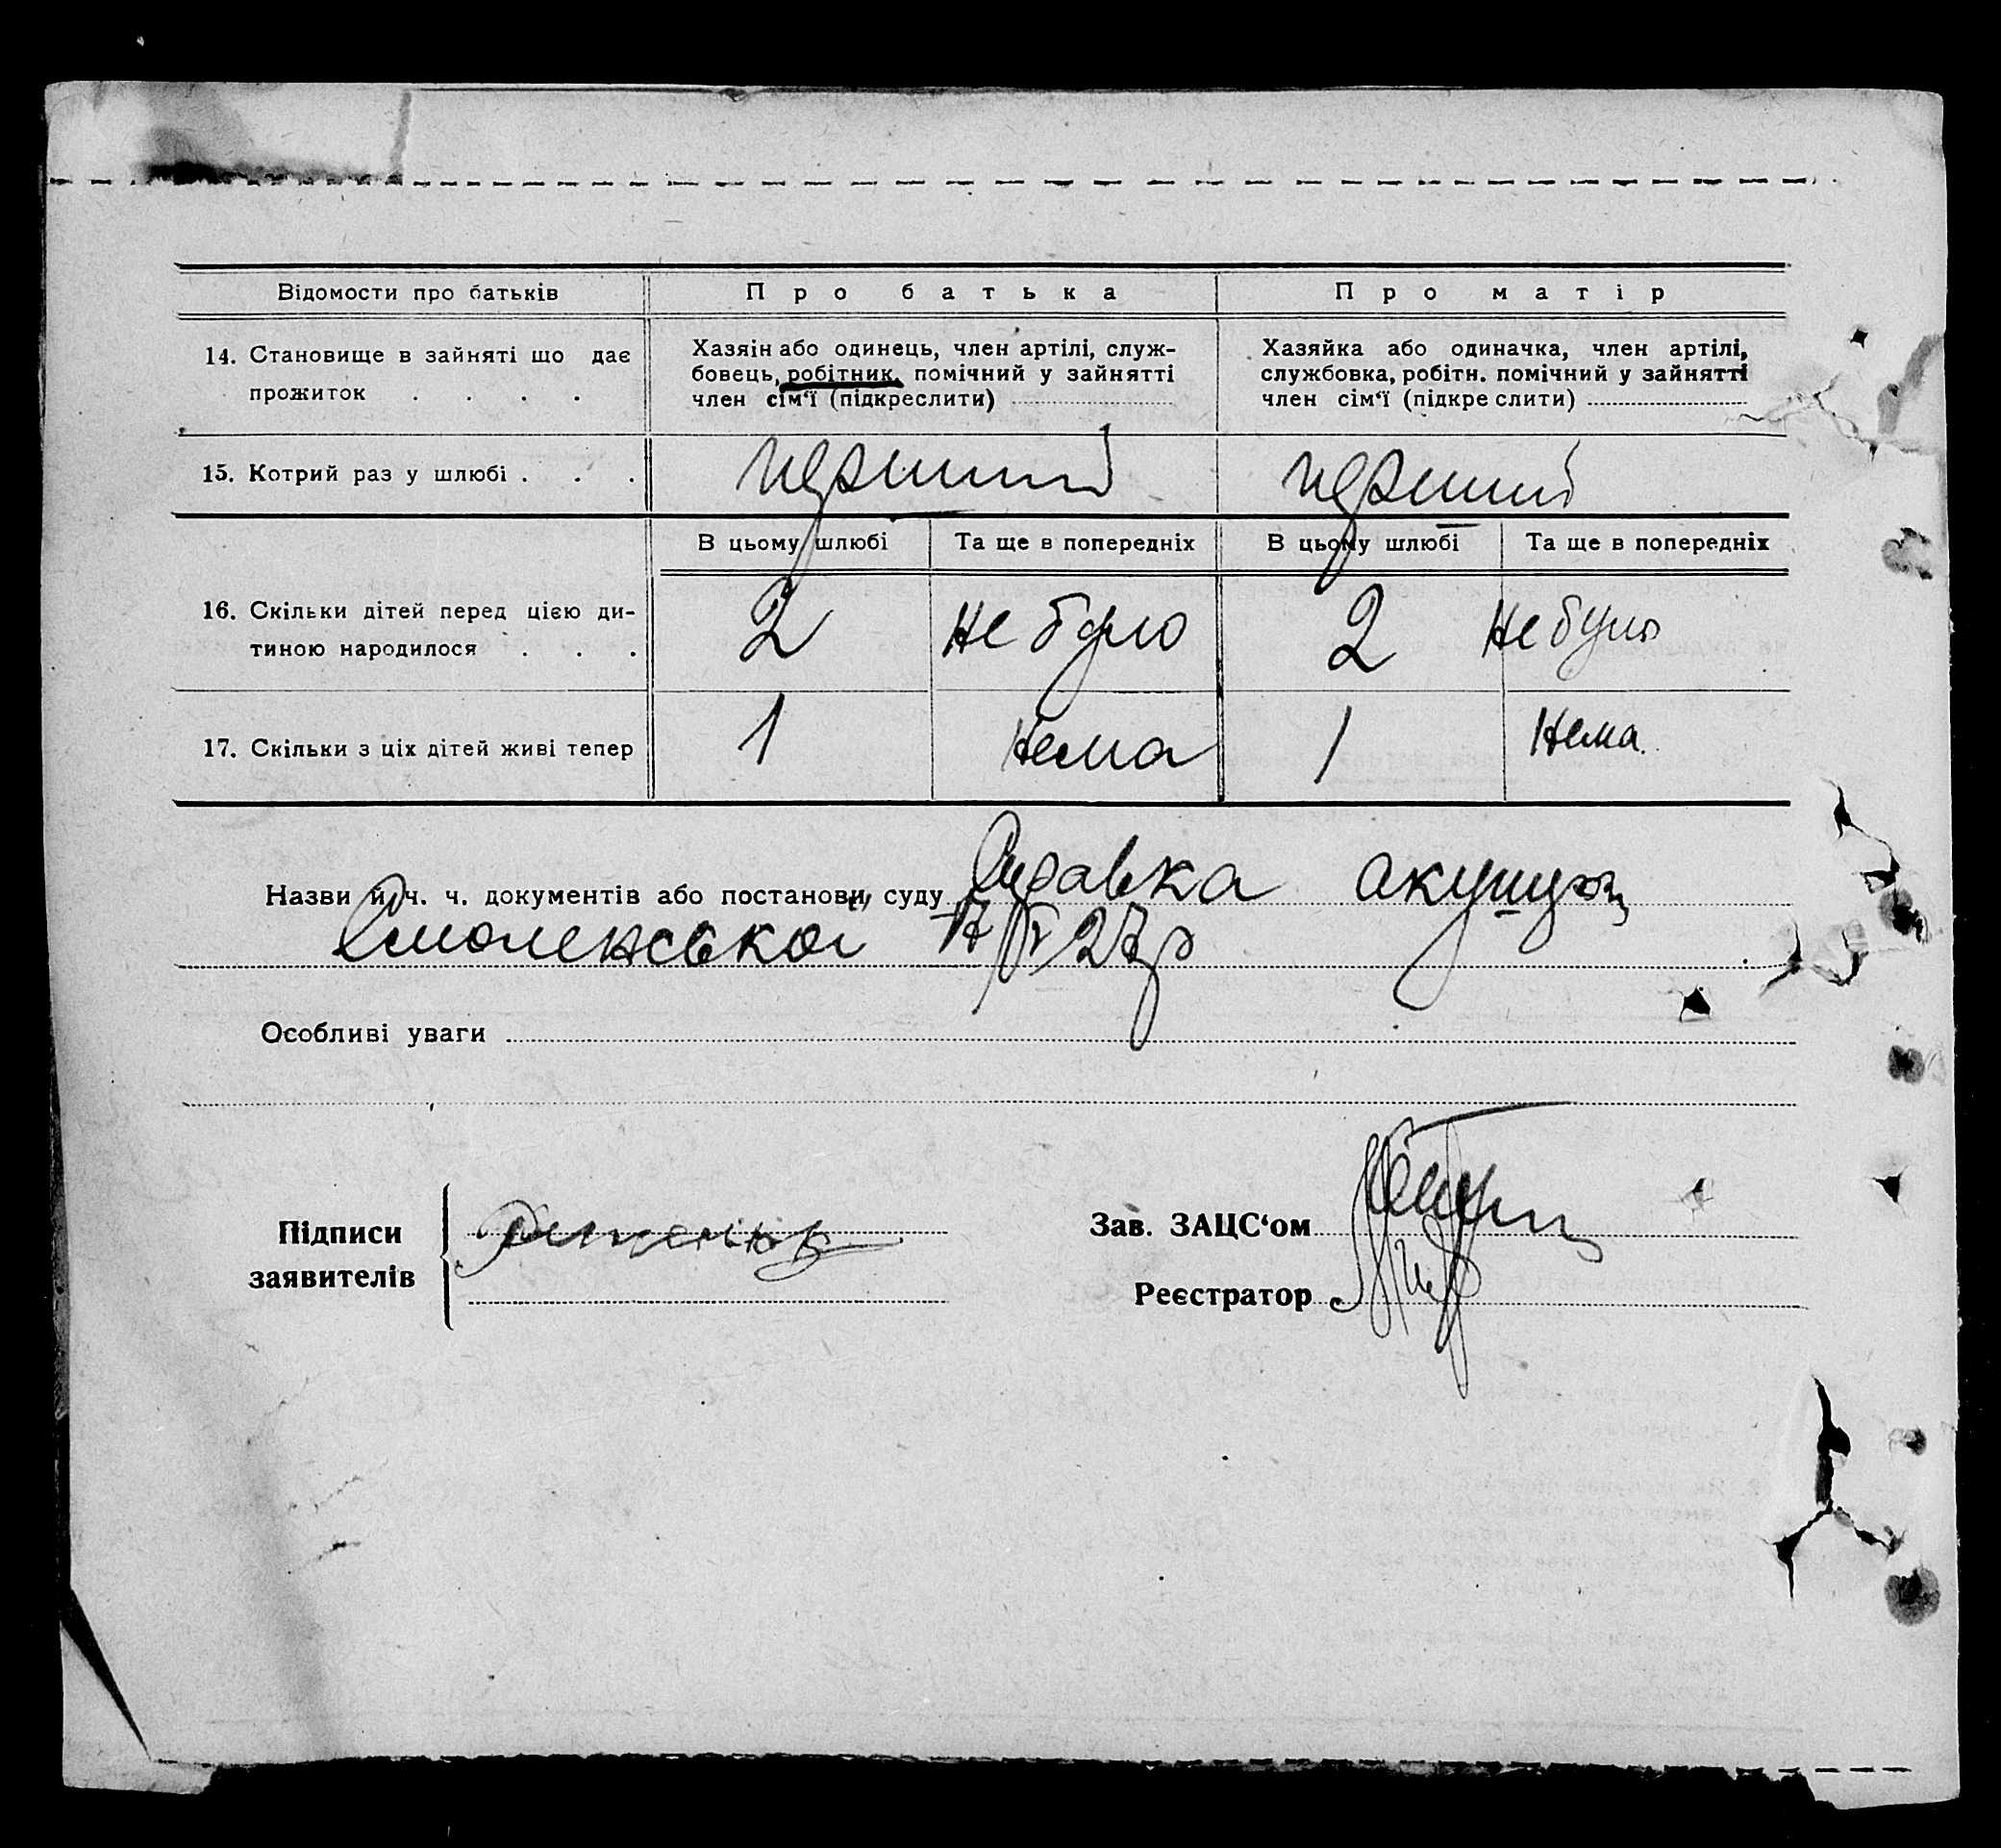 Відомости про батьків Про батька Про матір
14. Становище в зайняті що дає прожиток . . . .
Хазяїн або одинець, член артілі, служ-
бовець, робітник, помічний у зайнятті
член сім‘ї (підкреслити)
Хазяйка або одиначка, член артілі,
службовка, робітн. помічний у зайнятті
член сім‘ї (підкреслити)
15. Котрий раз у шлюбі . . . перший перший
В цьому шлюбі Та ще в попередніх В цьому шлюбі Та ще в попередніх
16. Скільки дітей перед цією ди-
тиною народилося . . . 2 не було 2 не було
17. Скільки з ціх дітей живі тепер 1 нема 1 нема
Назви й ч. ч. документів або постанови суду Справка акушерк
Смоленської 17/ 27р
Особливі уваги
Підписи
заявителів
Зав. ЗАЦС‘ом
Реєстратор